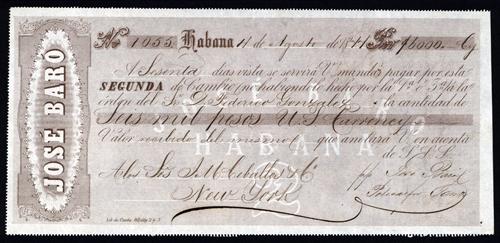 JOSÉ BARÓ
No 1055 Habana 11 de Agosto de 18 Por $6000. Cy
A Sesenta dias vista se servirá V. mandar pagar por esta
SEGUNDA de Cambio (no habiendo hecho por la 1ª o 3ª) a la
orden del Sr. D. Federico Gonzalez la cantidad de
Seis mil pesos U.S. Currency
Valor recibido del mismo que anotará V. en cuenta
HABANA
A los Srs. J. M. Ceballos & Co.
New York
pp José Baró